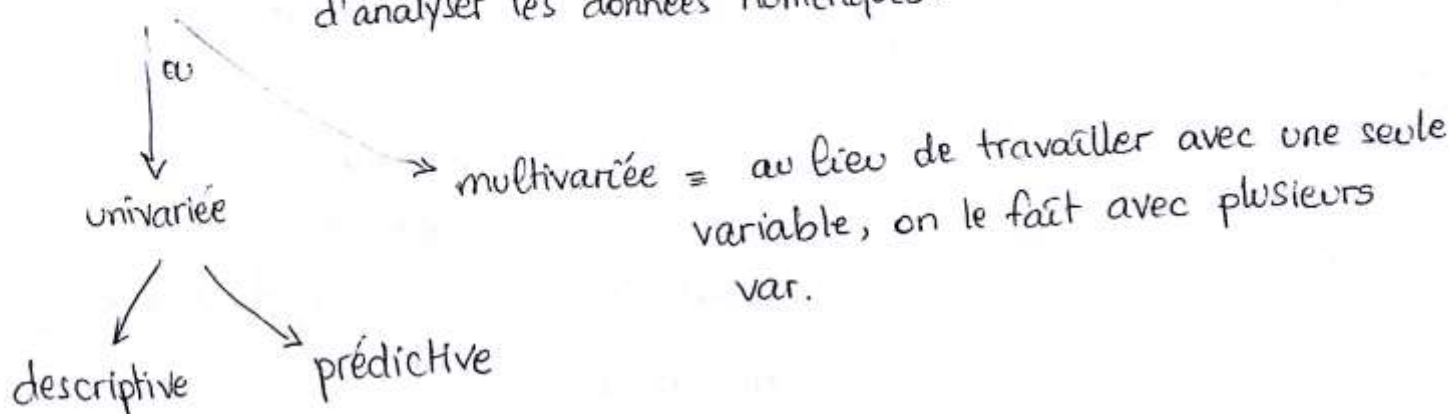 d'analyser les données numériques.
ou
multivariée = au lieu de travailler avec une seule
variable, on le fait avec plusieurs
var.
univariée
descriptive
prédictive